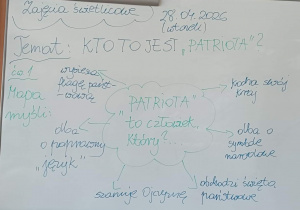 Zajęcia świetlicowe
28.04.2026
(wtorek)
Temat: KTO TO JEST „PATRIOTA"?
cz. 1
Mapa
myśli:
wywiesza
flagę państ-
wową
kocha swój
kraj
„PATRIOTA"
to człowiek,
który?...
dba
o poprawny
„język"
dba o
symbole
narodowe
szanuje Ojczyznę
obchodzi święta
państwowe